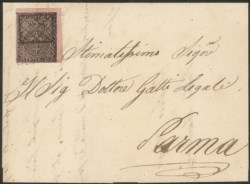 Stimatissimo Signe
Il Sig Dottore Gatti Legale
Parma